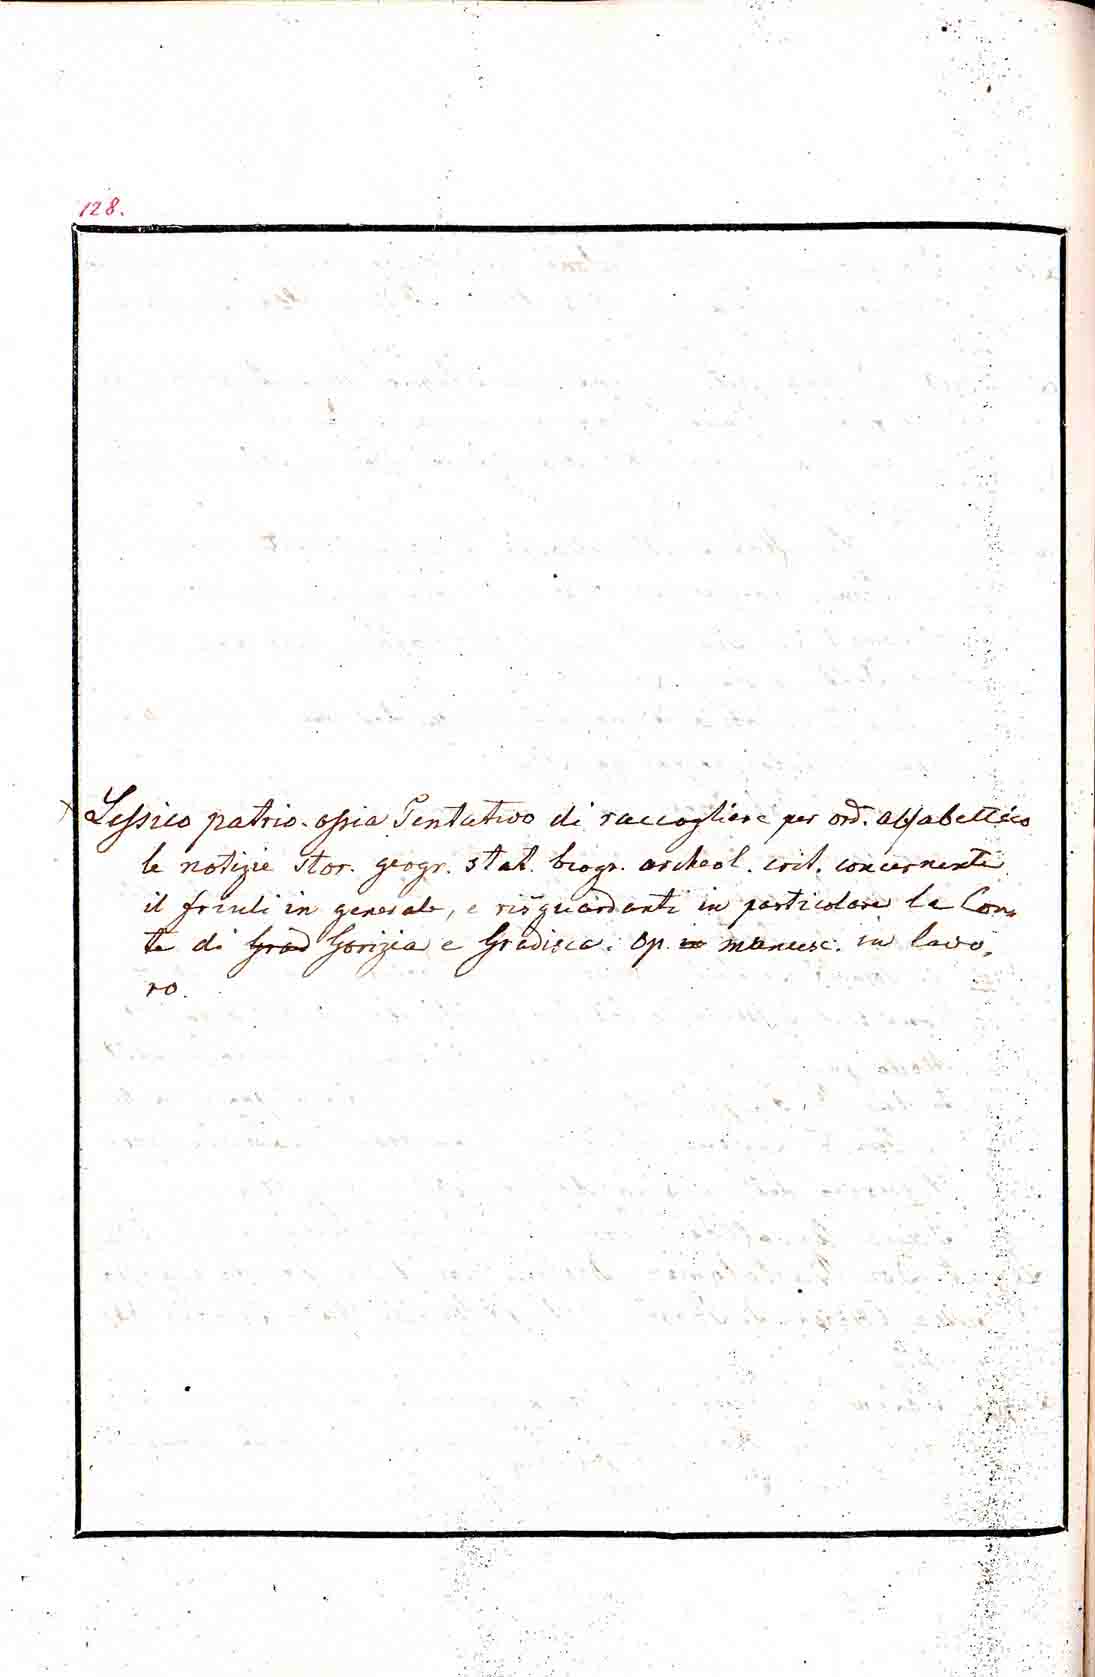 128.
Lessico patrio. ossia Tentativo di raccogliere per ord. alfabettico
le notizie stor. geogr. stat. biogr. archeol. crit. concernenti
il friuli in generale, e risguardanti in particolare la Con,
te di Grad Gorizia e Gradisca. Op. in manusc. in lavo,
ro.